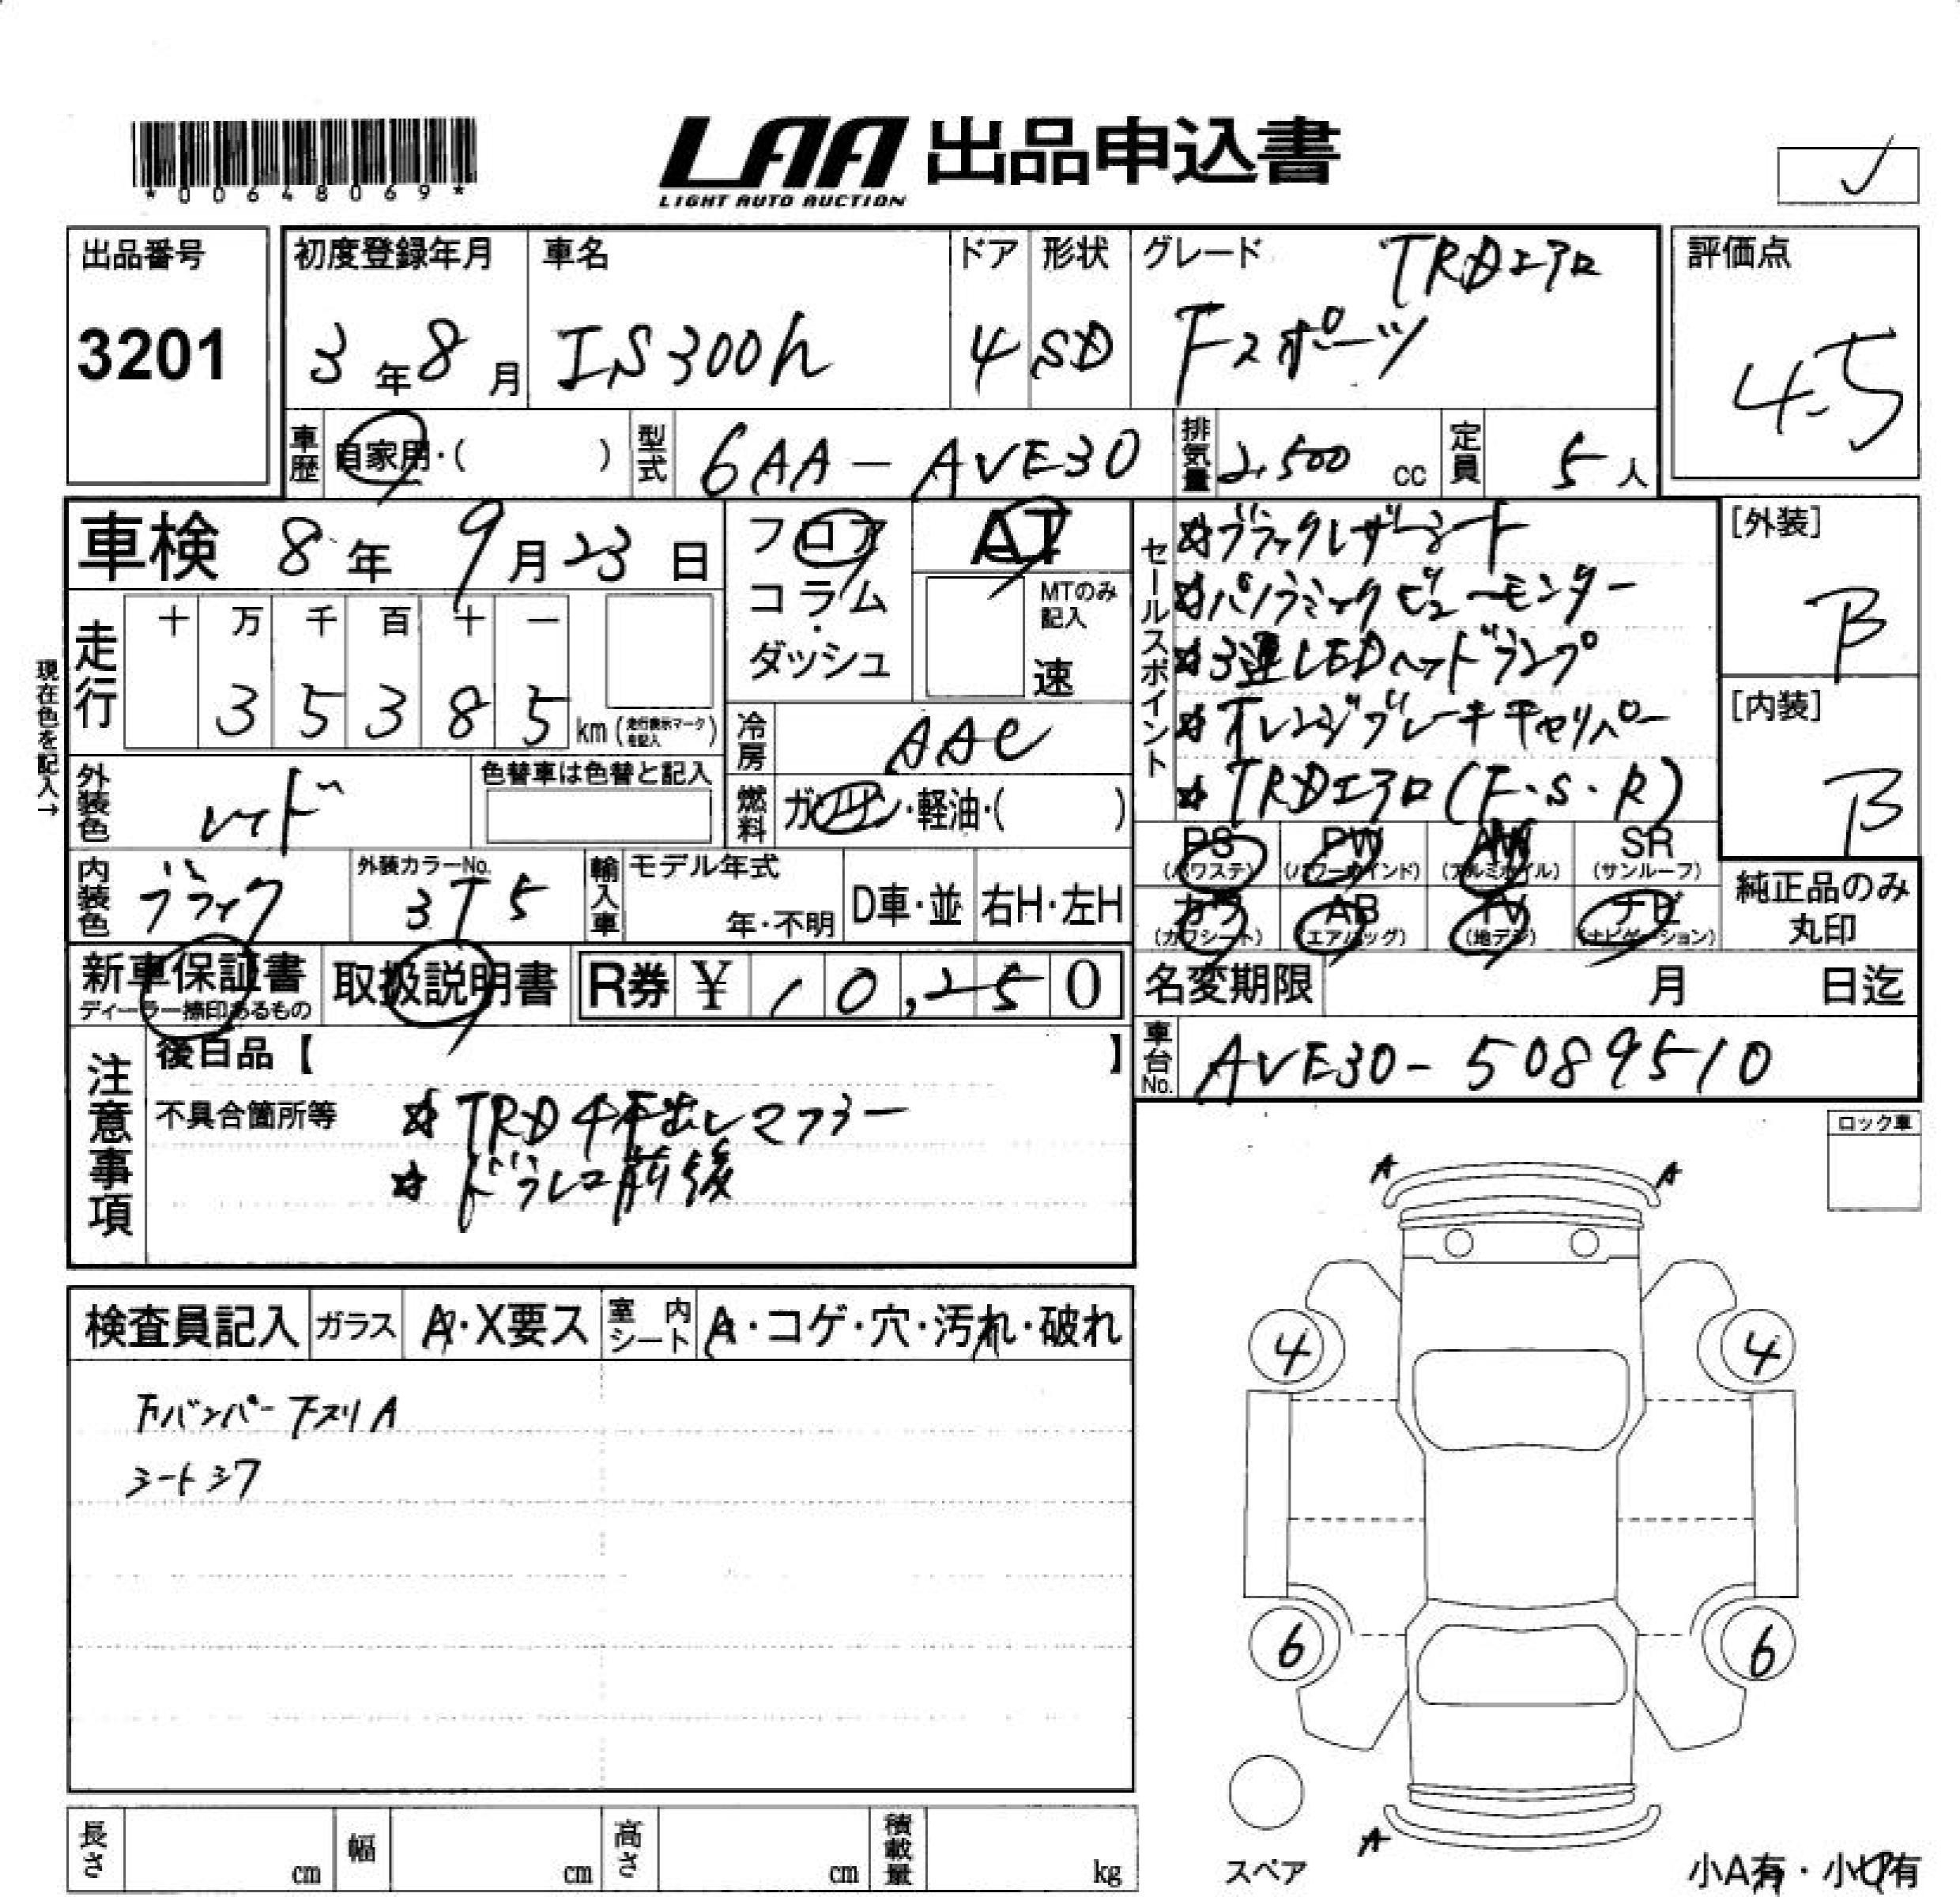 *00648069*
LAA 出品申込書
LIGHT AUTO AUCTION
出品番号
3201
初度登録年月
3年8月
車名
IS300h
ドア
4
形状
SD
グレード
TRDエアロ
Fスポーツ
評価点
4.5
車歴
自家用・( )
型式
6AA-AVE30
排気量
2,500 cc
定員
5人
車検 8年9月23日
フロア
コラム
・
ダッシュ
AT
MTのみ記入
速
セールスポイント
☆ブラックレザーシート
☆パノラミックビューモニター
☆3連LEDヘッドランプ
☆オレンジブレーキキャリパー
☆TRDエアロ(F・S・R)
[外装]
B
[内装]
B
現在色を記入→
走行
十 万 千 百 十 一
3 5 3 8 5 km (走行表示マークを記入)
冷房
AAC
燃料
ガソリン・軽油・( )
外装色
レッド
色替車は色替と記入
内装色
ブラック
外装カラーNo.
3T5
輸入車
モデル年式
年・不明
D車・並
右H・左H
PS (パワステ)
PW (パワーウインド)
AW (アルミホイル)
SR (サンルーフ)
カワ (カワシート)
AB (エアバッグ)
TV (地デジ)
ナビ (ナビゲーション)
純正品のみ
丸印
新車保証書
ディーラー捺印あるもの
取扱説明書
R券 ¥10,250
名変期限 月 日迄
車台No.
AVE30-5089510
注意事項
後日品【 】
不具合箇所等
☆TRD4本出しマフラー
☆ドラレコ前後
ロック車
検査員記入
ガラス
A・X要ス
室内シート
A・コゲ・穴・汚れ・破れ
Fバンパー下スリA
シートシワ
A A
4 4
6 6
A
スペア
小A有・小U有
長さ cm
幅 cm
高さ cm
積載量 kg